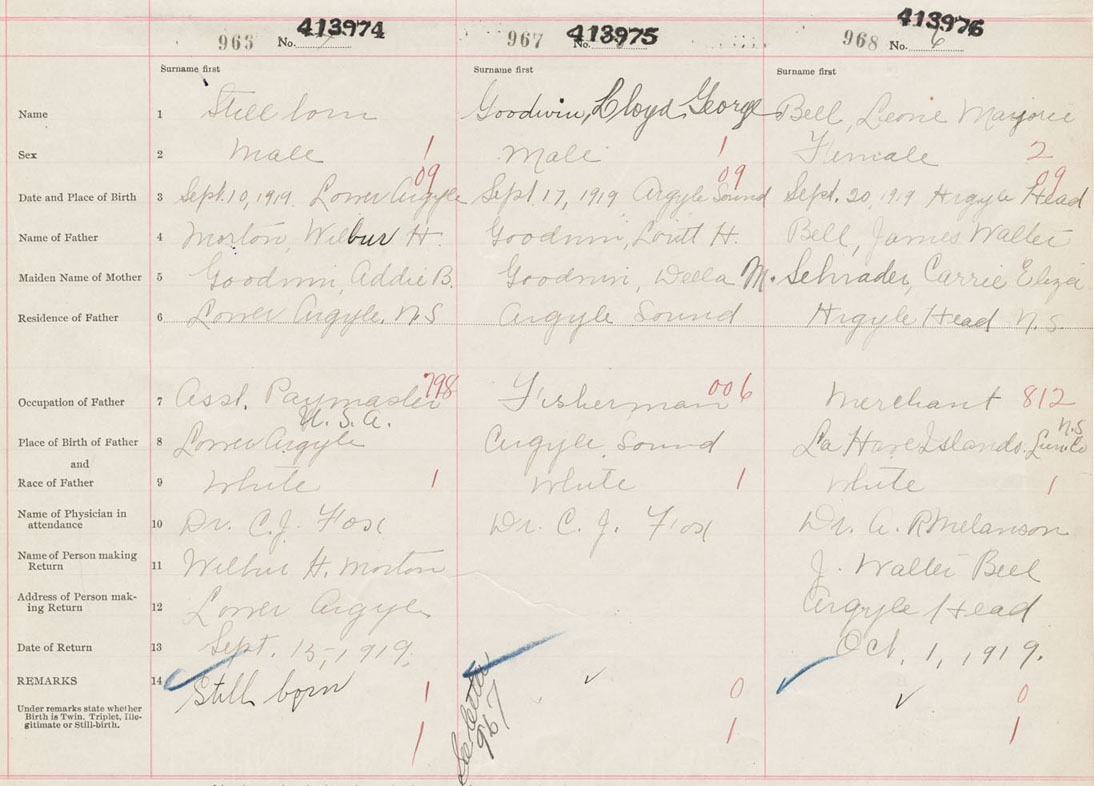 413974 413975 413976
965 No. 967 No. 968 No. 6
Surname first Surname first Surname first
Name 1 Still born Goodwin, Lloyd George Bell, Leone Marjorie
Sex 2 Male 1 Male 1 Female 2
09 09 09
Date and Place of Birth 3 Sept. 10, 1919 Lower Argyle Sept. 17, 1919 Argyle Sound Sept. 20, 1919 Argyle Head
Name of Father 4 Morton, Wilbur H. Goodwin, H. Bell, James Walter
Maiden Name of Mother 5 Goodwin, Addie B. Goodwin, Della M. Schrader, Carrie Eliza
Residence of Father 6 Lower Argyle, N.S Argyle Sound Argyle Head N.S
Occupation of Father 7 Asst. Paymaster 798 Fisherman 006 Merchant 812
U.S.A. N.S
Place of Birth of Father 8 Lower Argyle Argyle Sound La Have Islands, Lun. Co
and
Race of Father 9 White 1 White 1 White 1
Name of Physician in
attendance 10 Dr. C. J. Fox Dr. C. J. Fox Dr. A. R. Melanson
Name of Person making
Return 11 Wilbur H. Morton J. Walter Bell
Address of Person mak-
ing Return 12 Lower Argyle Argyle Head
Date of Return 13 Sept. 15, 1919. Oct. 1, 1919.
REMARKS 14 Still born 1 0 0
Under remarks state whether
Birth is Twin, Triplet, Ille-
gitimate or Still-birth.
1 1 1
967